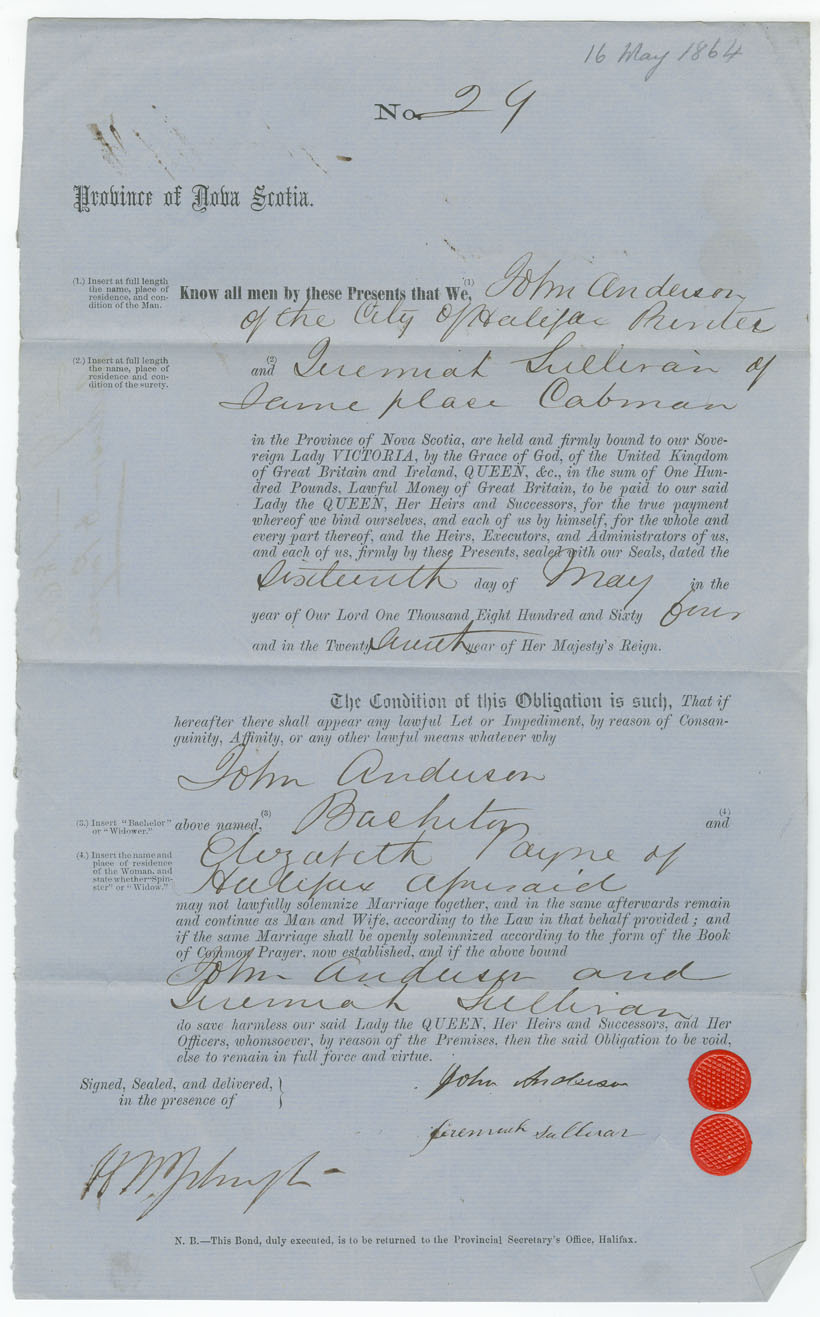 16 May 1864
No. 29
Province of Nova Scotia.
(1.) Insert at full length
the name, place of
residence, and con-
dition of the Man.
Know all men by these Presents that We, (1) John Anderson
of the City of Halifax Printer
(2.) Insert at full length
the name, place of
residence and con-
dition of the surety.
(2)
and Jeremiah Sullivan of
same place Cabman
in the Province of Nova Scotia, are held and firmly bound to our Sove-
reign Lady VICTORIA, by the Grace of God, of the United Kingdom
of Great Britain and Ireland, QUEEN, &c., in the sum of One Hun-
dred Pounds, Lawful Money of Great Britain, to be paid to our said
Lady the QUEEN, Her Heirs and Successors, for the true payment
whereof we bind ourselves, and each of us by himself, for the whole and
every part thereof, and the Heirs, Executors, and Administrators of us,
and each of us, firmly by these Presents, sealed with our Seals, dated the
Sixteenth day of May in the
year of Our Lord One Thousand Eight Hundred and Sixty four
and in the Twenty Seventh year of Her Majesty's Reign.
The Condition of this Obligation is such, That if
hereafter there shall appear any lawful Let or Impediment, by reason of Consan-
guinity, Affinity, or any other lawful means whatever why
John Anderson
(3.) Insert "Bachelor"
or "Widower."
above named, (3) Bachelor and (4)
(4.) Insert the name and
place of residence
of the Woman, and
state whether "Spin-
ster" or "Widow."
Elizabeth Payne of
Halifax aforesaid
may not lawfully solemnize Marriage together, and in the same afterwards remain
and continue as Man and Wife, according to the Law in that behalf provided; and
if the same Marriage shall be openly solemnized according to the form of the Book
of Common Prayer, now established, and if the above bound
John Anderson and
Jeremiah Sullivan
do save harmless our said Lady the QUEEN, Her Heirs and Successors, and Her
Officers, whomsoever, by reason of the Premises, then the said Obligation to be void,
else to remain in full force and virtue.
Signed, Sealed, and delivered,
in the presence of
John Anderson
Jeremiah Sullivan
N. B.—This Bond, duly executed, is to be returned to the Provincial Secretary's Office, Halifax.